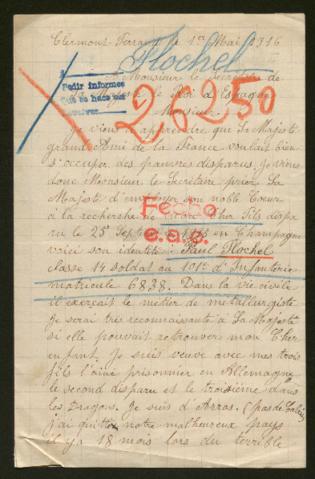 Clermont Ferrand le 1er Mai 1916
Flochel
Monsieur le Secrétaire de
le Roi d'Espagne
Pedir informes
que se hace con
26250
Monsieur
Je viens d'apprendre que Sa Majesté
grand Ami de la France voulait bien
s'occuper des pauvres disparus, je viens
donc Monsieur le Secrétaire prier Sa
Majesté d'employer son noble Cœur
à la recherche de Cher fils dispa
Fecho
ru le 25 Septembre en Champagne
e.a.g.
voici son identité Paul Flochel
classe 14 soldat au 101e d'Infanterie
matricule 6838. Dans la vie civile
il exerçait le métier de metallurgiste
Je serai très reconnaissante à Sa Majesté
si elle pouvait retrouver mon Cher
enfant. Je suis veuve avec mes trois
fils l'ainé prisonnier en Allemagne
le second disparu et le troisième dans
les Dragons. Je suis d'Arras, (pas de Calais)
j'ai quitter notre malheureux pays
il y a 18 mois lors du terrible